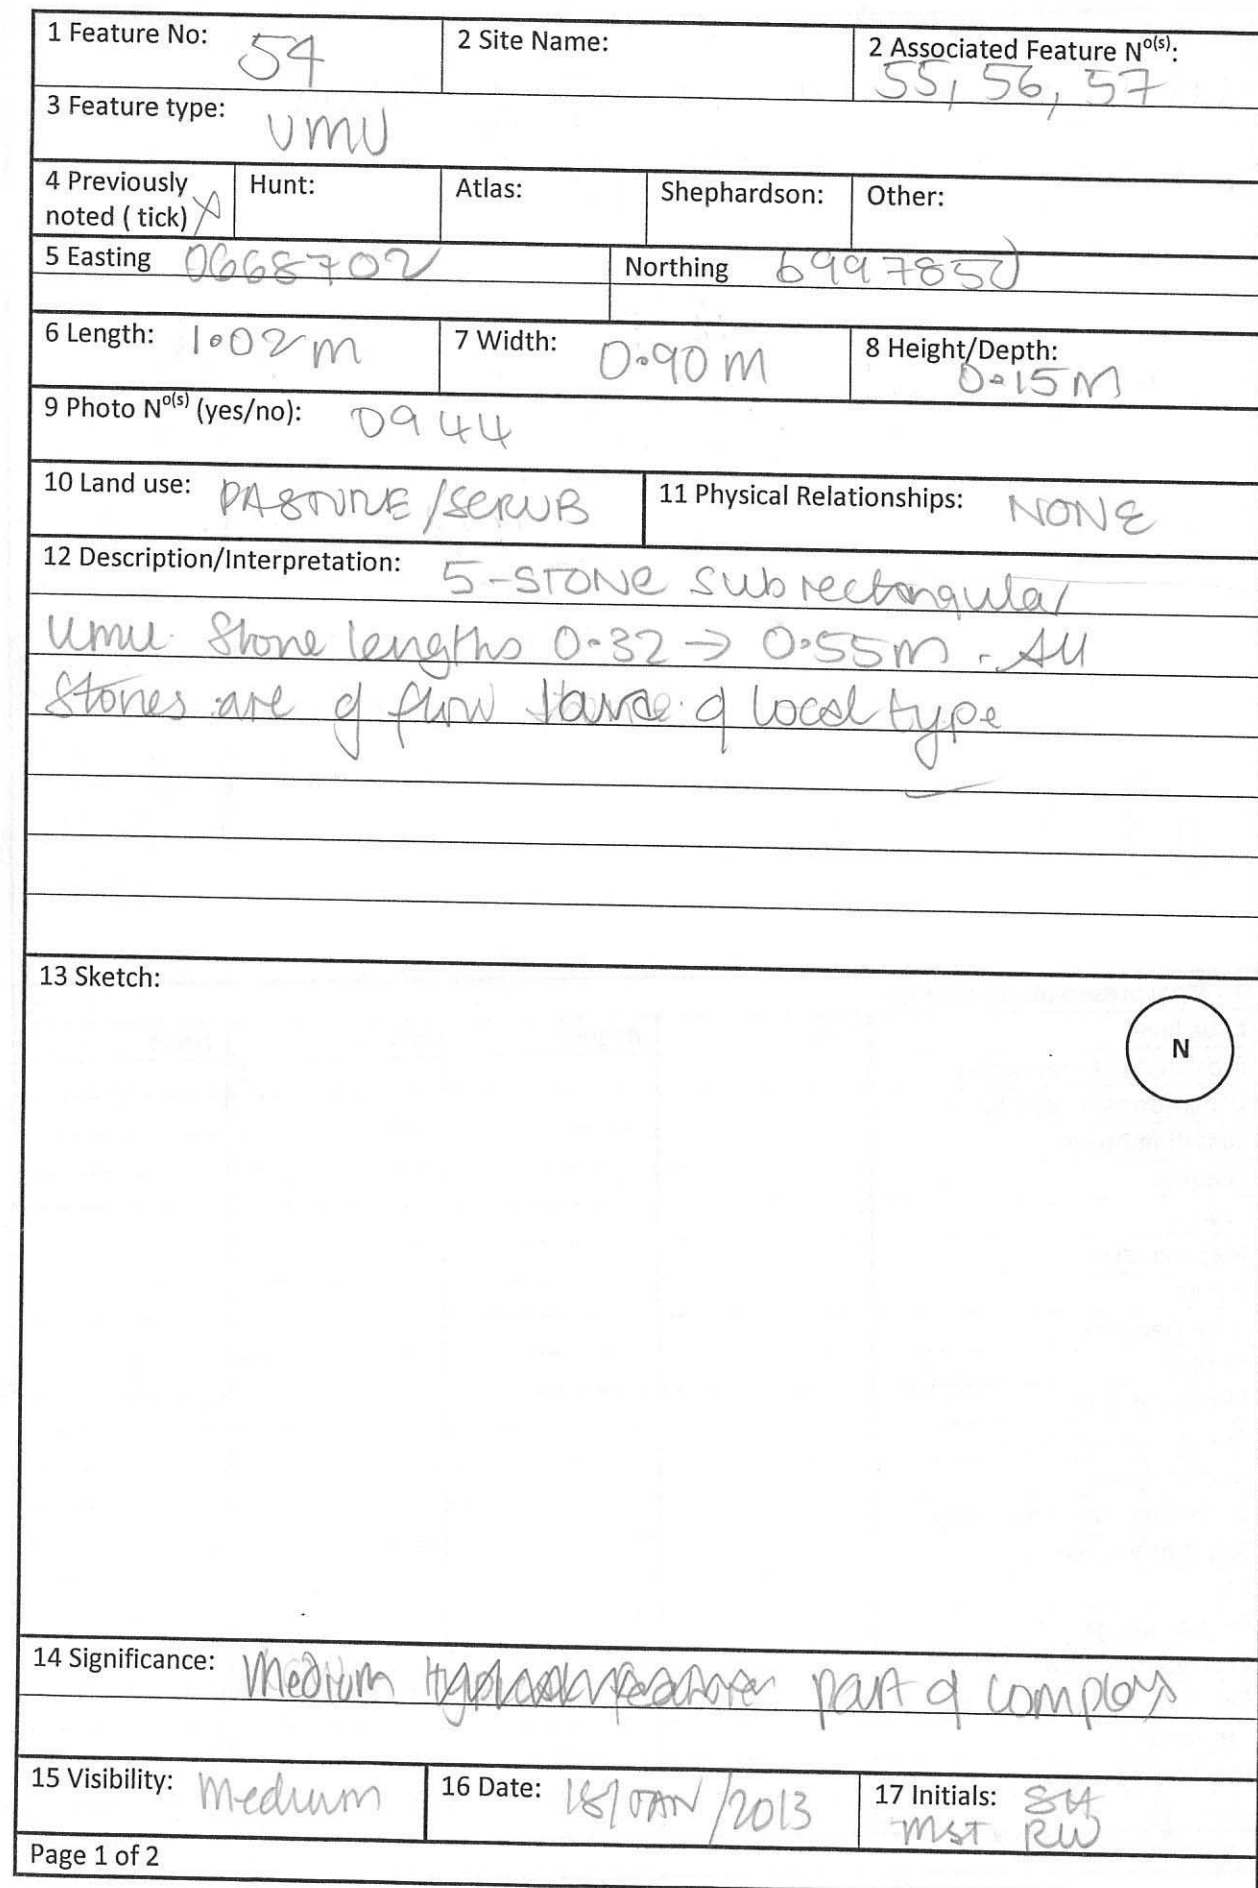 1 Feature No: 54
2 Site Name:
2 Associated Feature No(s):
55, 56, 57
3 Feature type: UMU
4 Previously noted ( tick) X
Hunt:
Atlas:
Shephardson:
Other:
5 Easting 0668702
Northing 6997850
6 Length: 1.02m
7 Width: 0.90m
8 Height/Depth:
0.15m
9 Photo No(s) (yes/no): 0944
10 Land use: PASTURE/SCRUB
11 Physical Relationships: NONE
12 Description/Interpretation: 5-STONE subrectangular
umu. Stone lengths 0.32 → 0.55m. All
stones are of flow of local type
13 Sketch:
N
14 Significance: Medium part of complex
15 Visibility: Medium
16 Date: 18/JAN/2013
17 Initials: SH
MST RW
Page 1 of 2